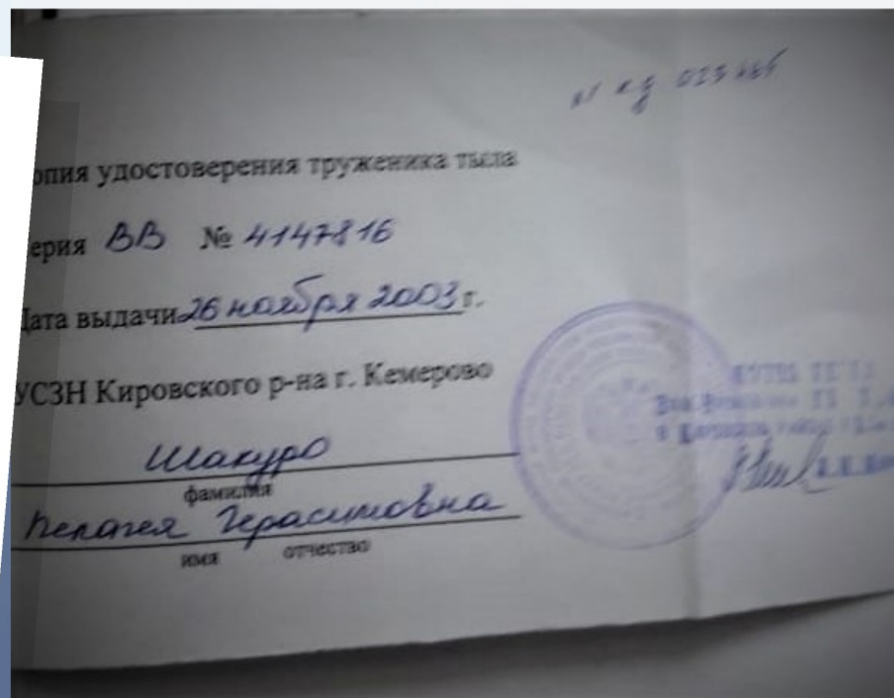 опия удостоверения труженика тыла
ерия ВВ № 4147816
Дата выдачи 26 ноября 2003 г.
УСЗН Кировского р-на г. Кемерово
Шакуро
фамилия
Пелагея Герасимовна
имя отчество